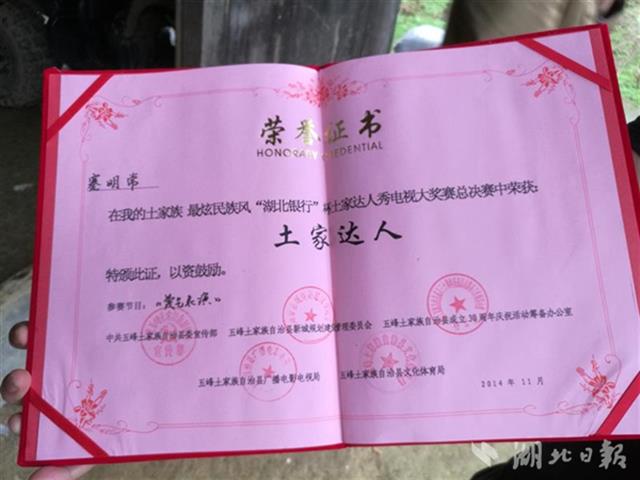 荣誉证书
HONORARY CREDENTIAL
蹇明常
在我的土家族 最炫民族风“湖北银行”杯土家达人秀电视大奖赛总决赛中荣获:
土家达人
特颁此证,以资鼓励。
参赛节目:
中共五峰土家族自治县委宣传部 五峰土家族自治县新城规划建设管理委员会 五峰土家族自治县成立30周年庆祝活动筹备办公室
五峰土家族自治县广播电影电视局 五峰土家族自治县文化体育局 2014年11月
湖北日报